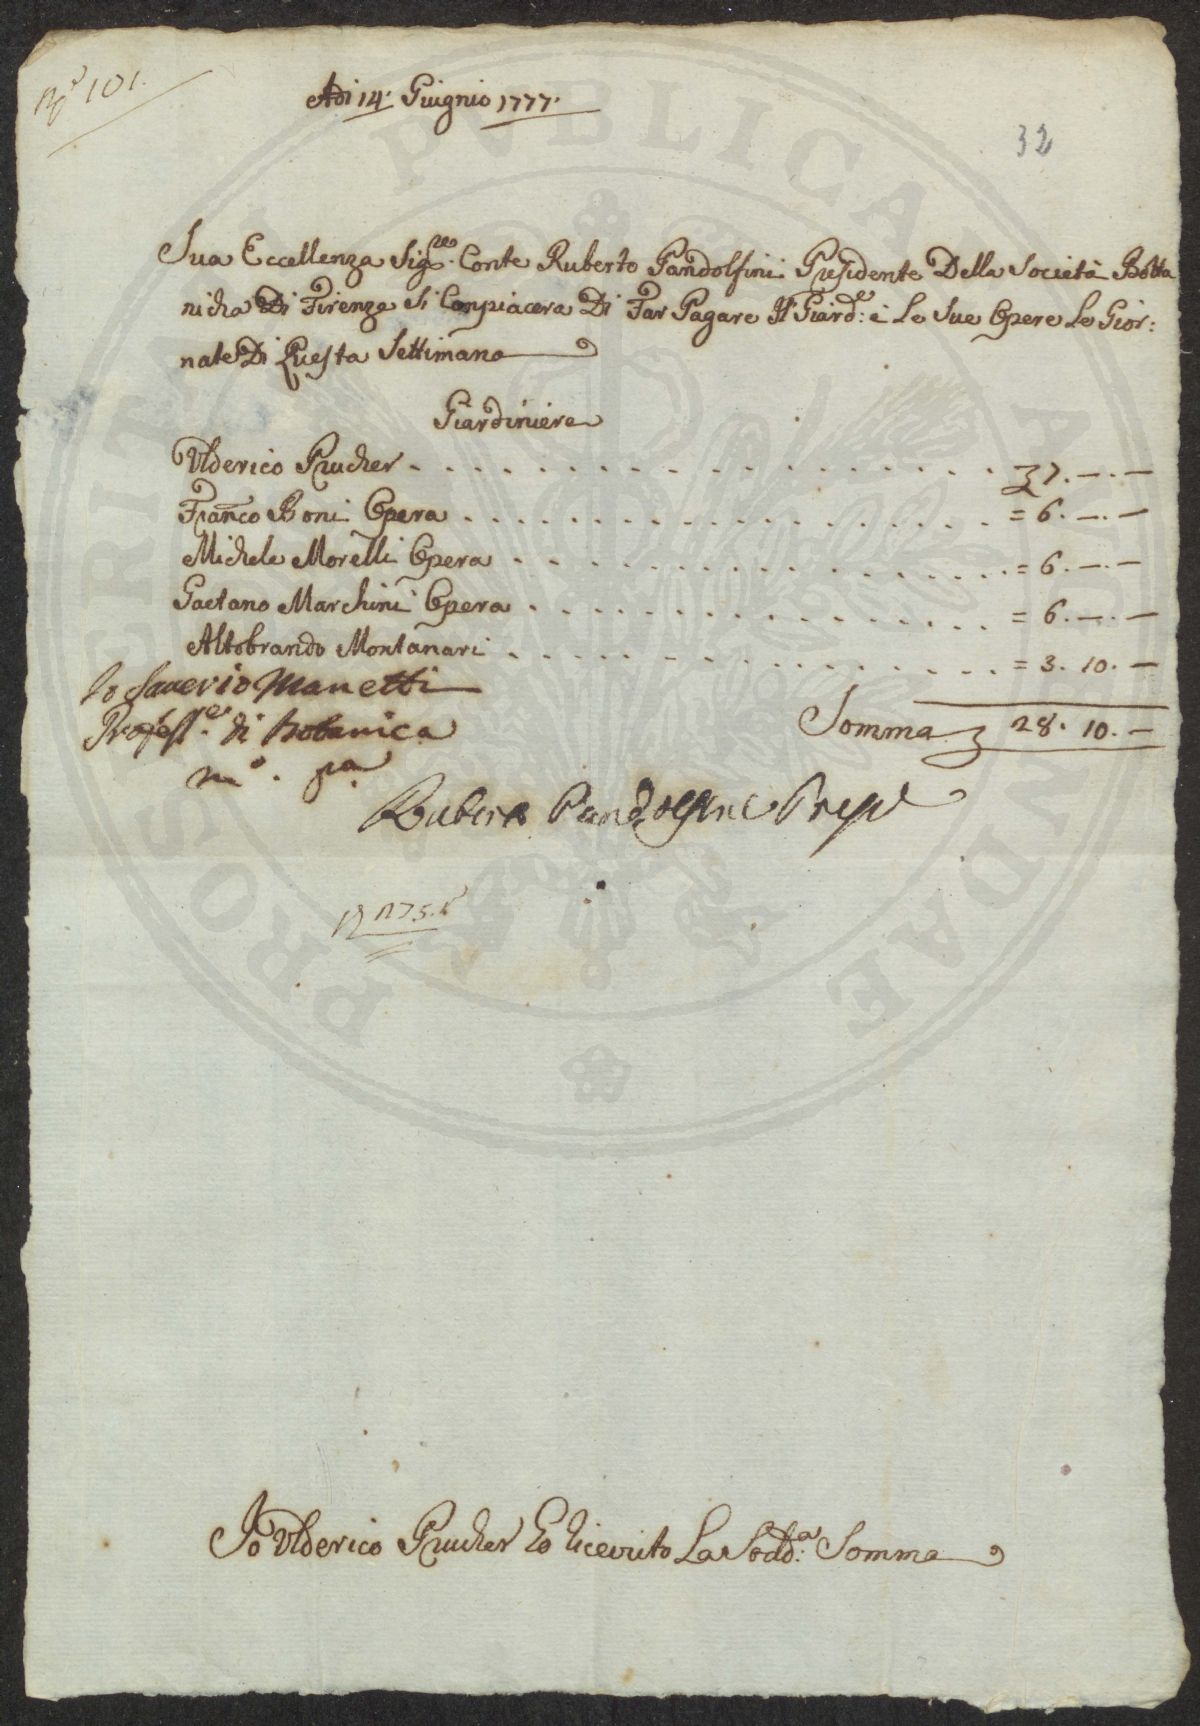 N.º 101.
Adi 14. Giugnio 1777.
32
Sua Eccellenza Sig.re Conte Ruberto Pandolfini Presidente Della Società Botta
nicha Di Firenze Si Conpiacera Di Far Pagare Il Giard.e e Le Sue Opere Le Gior:
nate Di Questa Settimana
Giardiniere
Ulderico Prucher . . . . . . . . . . . . . . . . 7. —. —
Franco Boni Opera . . . . . . . . . . . . . . . = 6. —. —
Michele Morelli Opera . . . . . . . . . . . . . = 6. —. —
Gaetano Marchini Opera . . . . . . . . . . . . = 6. —. —
Altobrando Montanari . . . . . . . . . . . . . = 3. 10. —
Io Saverio Manetti
Profess.e di Botanica
m.o p.a
Somma 28. 10. —
Ruberto Pandolfini Presid
175
Io Ulderico Prucher Ho Ricevuto La Sodd.a Somma
PUBLICAE
PROSPERITATI